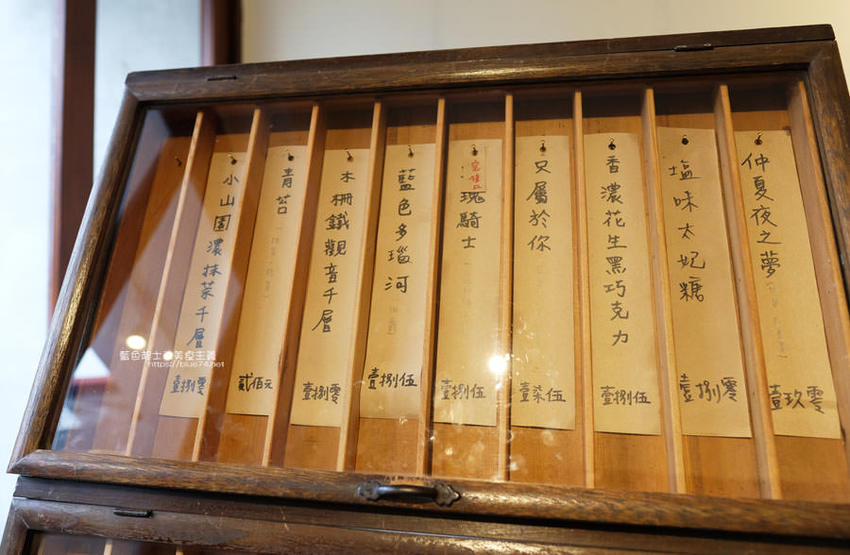 仲夏夜之夢
壹玖零
塩味太妃糖
壹捌零
香濃花生黑巧克力
壹捌伍
只屬於你
壹柒伍
瑰騎士
壹捌伍
藍色多瑙河
壹捌伍
木柵鐵觀音千層
壹捌零
青苔
貳佰元
小山園濃抹茶千層
壹捌零
藍色騎士●美食主義
https://blue74.net